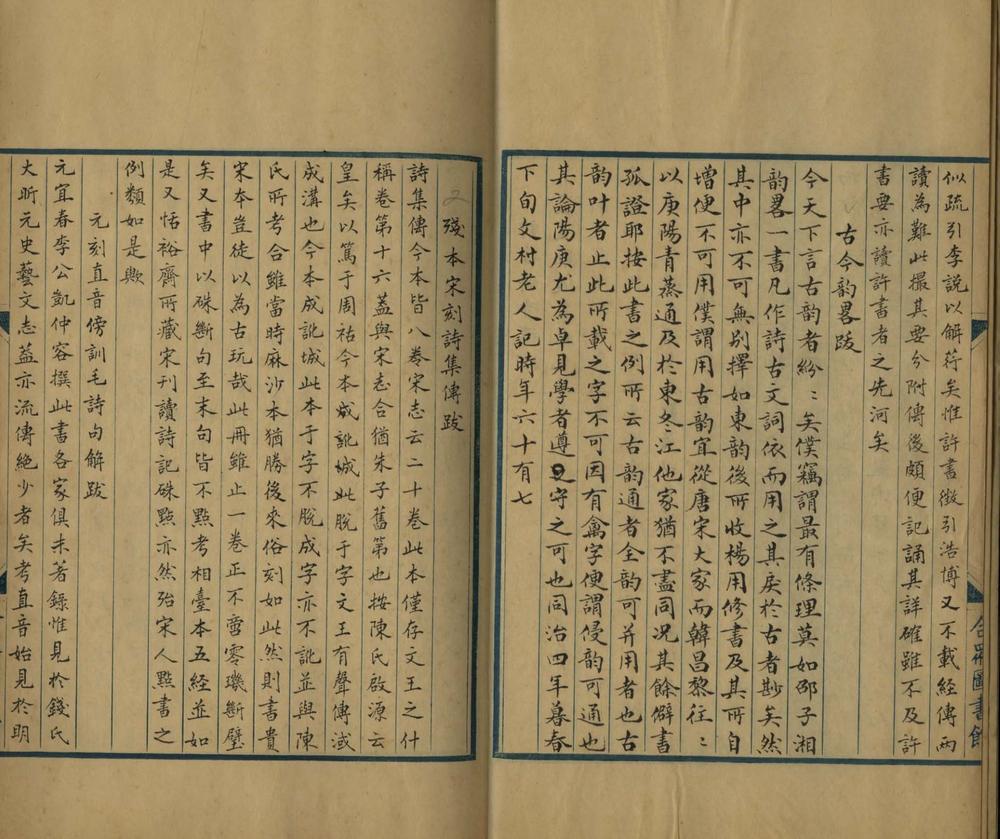 似疏引李說以解荇矣惟許書徵引浩博又不載經傳兩
讀為難此撮其要分附傳後頗便記誦其詳確雖不及許
書要亦讀許書者之先河矣
古今韵畧跋
今天下言古韵者紛〻矣僕竊謂最有條理莫如邵子湘
韵畧一書凡作詩古文詞依而用之其戾於古者尠矣然
其中亦不可無別擇如東韵後所收楊用修書及其所自
增便不可用僕謂用古韵宜從唐宋大家而韓昌黎往〻
以庚陽青蒸通及於東冬江他家猶不盡同況其餘僻書
孤證耶按此書之例所云古韵通者全韵可并用者也古
韵叶者止此所載之字不可因有禽字便謂侵韵可通也
其論陽庚尤為卓見學者遵而守之可也同治四年暮春
下旬文村老人記時年六十有七
合眾圖書館
殘本宋刻詩集傳跋
詩集傳今本皆八卷宋志云二十卷此本僅存文王之什
稱卷第十六蓋與宋志合猶朱子舊第也按陳氏啟源云
皇矣以篤于周祜今本脫于字文王有聲傳淢
成溝也今本成訛城此本于字不脫成字亦不訛並與陳
氏所考合雖當時麻沙本猶勝後來俗刻如此然則書貴
宋本豈徒以為古玩哉此冊雖止一卷正不啻零璣斷璧
矣又書中以硃斷句至末句皆不點考相臺本五經並如
是又恬裕齋所藏宋刊讀詩記硃點亦然殆宋人點書之
例類如是歟
元刻直音傍訓毛詩句解跋
元宜春李公凱仲容撰此書各家俱未著錄惟見於錢氏
大昕元史藝文志蓋亦流傳絕少者矣考直音始見於明